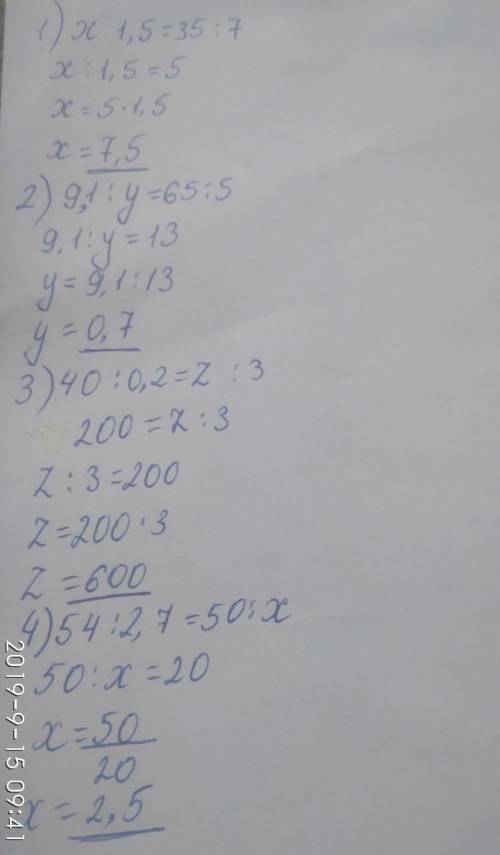 1) x : 1,5 = 35 : 7
x : 1,5 = 5
x = 5 · 1,5
x = 7,5
2) 9,1 : y = 65 : 5
9,1 : y = 13
y = 9,1 : 13
y = 0,7
3) 40 : 0,2 = z : 3
200 = z : 3
z : 3 = 200
z = 200 · 3
z = 600
4) 54 : 2,7 = 50 : x
50 : x = 20
x = 50
20
x = 2,5
2019-9-15 09:41